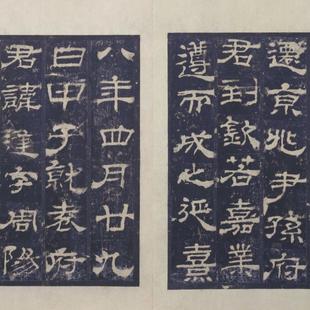 遷京兆尹孫府
君到欽若嘉業
遵而成之延熹
八年四月廿九
日甲子就袁府
君諱逢字周陽